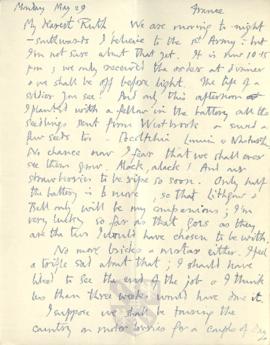 Monday May 29 France
My dearest Ruth We are moving to night
– southwards I believe to the 1st Army : but
I'm not sure about that yet. It is now 10.15
pm; we only received the order at dinner
& we shall be off before light. The life of a
soldier you see. And only this afternoon
I planted with a fellow in the battery all the
seedlings sent from Westbrook & sowed a
few seeds too.
No chance now I fear that we shall ever
see them grow. Alack, alack! And our
strawberries to be ripe so soon. Only half
the battery is to move, so that Lithgow &
Bell only will be my companions; I'm
very lucky so far as that goes as they
are the two I would have chosen to be with.
No more bricks & mortar either. I feel
a trifle sad about that; I should have
liked to see the end of the job & I think
less than three weeks would have done it.
I suppose we shall be touring the
country on motor lorries for a couple of days